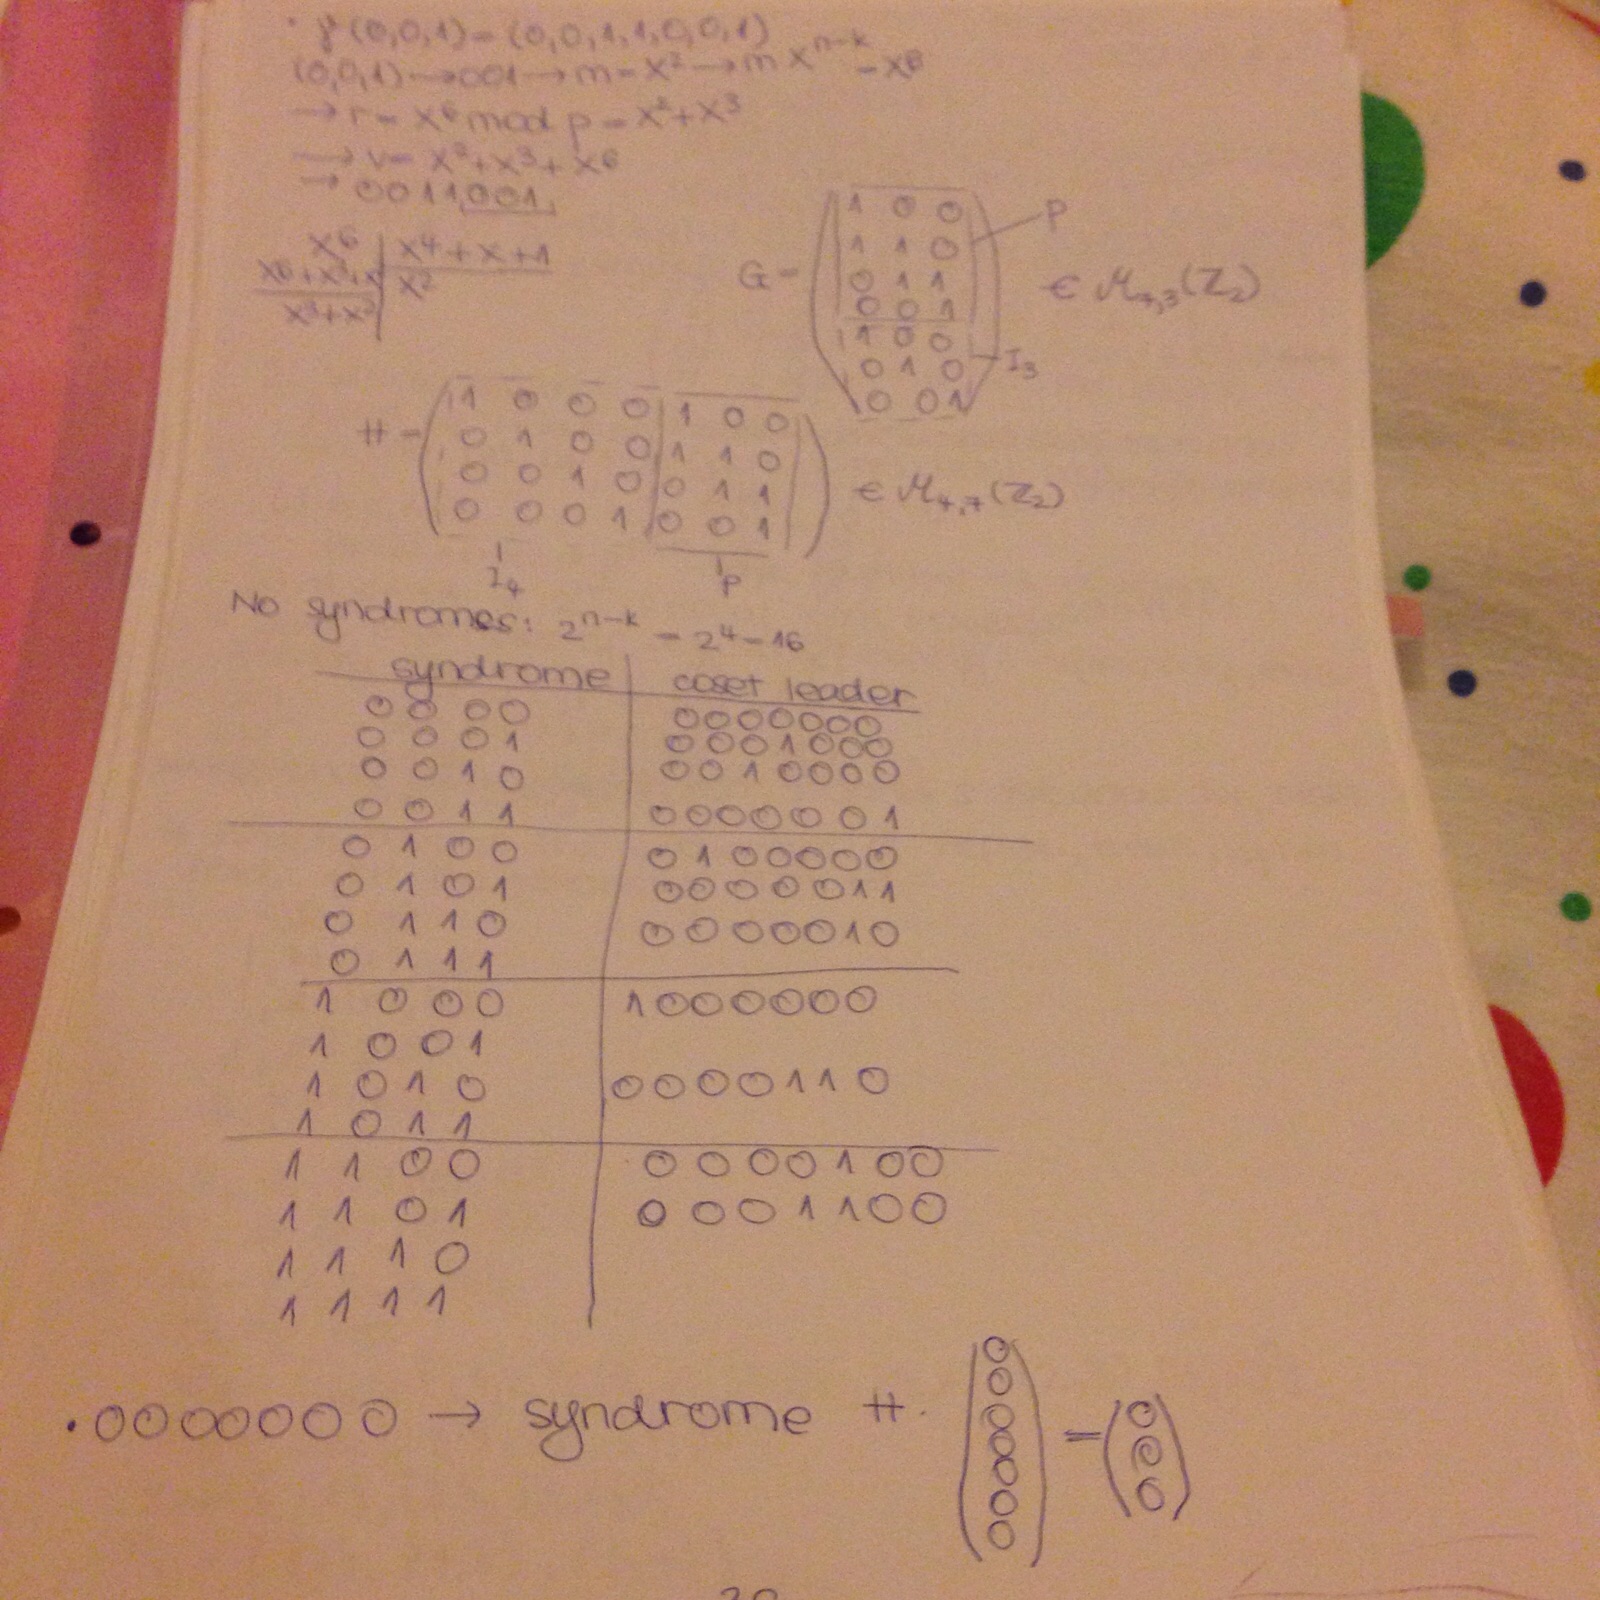 · γ(0,0,1) = (0,0,1,1,0,0,1)
(0,0,1) → 001 → m = x² → m x^{n-k} = x⁶
→ r = x⁶ mod p = x²+x³
→ v = x²+x³+x⁶
→ 0011001
x⁶ | x⁴+x+1
x⁶+x³+x² | x²
x³+x²
G =
1 0 0
1 1 0
0 1 1
0 0 1
1 0 0
0 1 0
0 0 1
P
I₃
∈ M₇,₃(Z₂)
H =
1 0 0 0 | 1 0 0
0 1 0 0 | 1 1 0
0 0 1 0 | 0 1 1
0 0 0 1 | 0 0 1
∈ M₄,₇(Z₂)
I₄ P
No syndromes: 2^{n-k} = 2⁴ = 16
syndrome | coset leader
0 0 0 0 | 0000000
0 0 0 1 | 0001000
0 0 1 0 | 0010000
0 0 1 1 | 0000001
0 1 0 0 | 0100000
0 1 0 1 | 0000011
0 1 1 0 | 0000010
0 1 1 1
1 0 0 0 | 1000000
1 0 0 1
1 0 1 0 | 0000110
1 0 1 1
1 1 0 0 | 0000100
1 1 0 1 | 0001100
1 1 1 0
1 1 1 1
· 0000000 → syndrome H · (0 0 0 0 0 0 0) = (0 0 0)